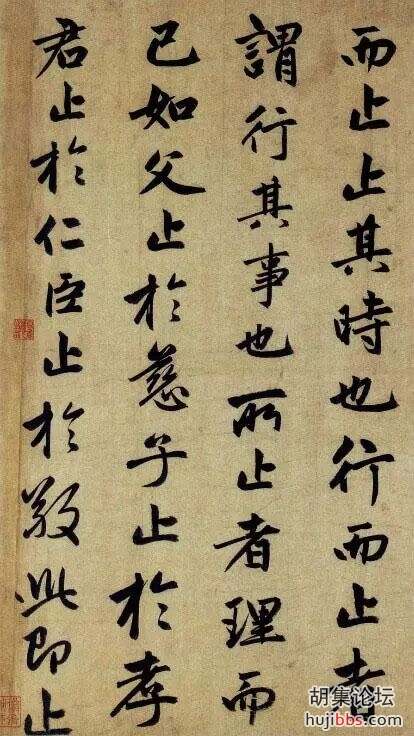 而止止其時也行而止者
謂行其事也所止者理而
已如父止於慈子止於孝
君止於仁臣止於敬此即止
胡集论坛
hujibbs.com